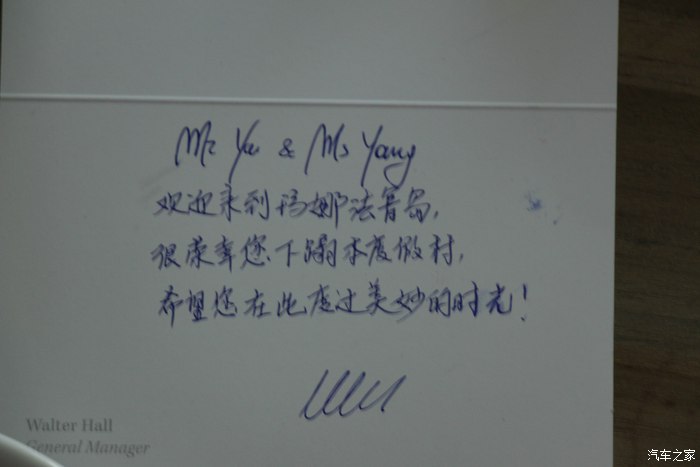 Mr Yu & Ms Yang
欢迎来到玛娜法鲁岛,
很荣幸您下榻本度假村,
希望您在此度过美妙的时光!
Walter Hall
General Manager
汽车之家